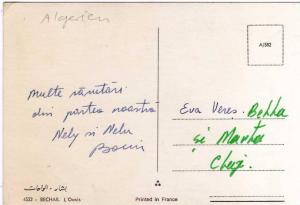 Algerien
A/382
multe sănătări
din partea noastră
Nely si Nelu
Eva Vereș. Betta
și Manta
Cluj.
بشار - الواحات
4533 - BECHAR. L'Oasis
Printed in France